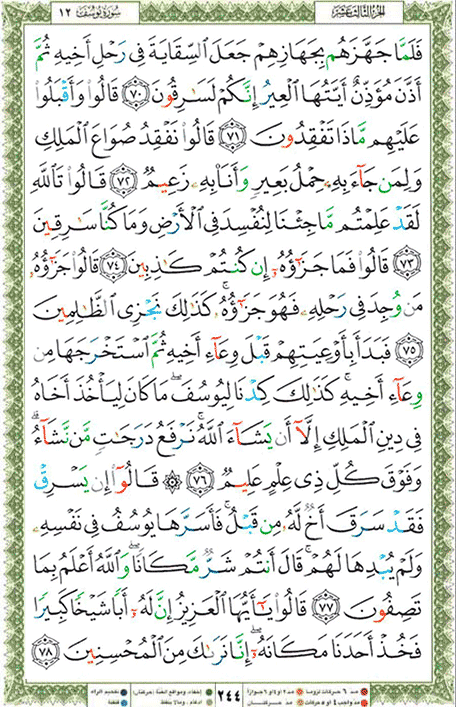 الجزء الثالث عشر
سورة يوسف ١٢
فَلَمَّا جَهَّزَهُم بِجَهَازِهِمْ جَعَلَ ٱلسِّقَايَةَ فِى رَحْلِ أَخِيهِ ثُمَّ
أَذَّنَ مُؤَذِّنٌ أَيَّتُهَا ٱلْعِيرُ إِنَّكُمْ لَسَٰرِقُونَ ٧٠ قَالُوا۟ وَأَقْبَلُوا۟
عَلَيْهِم مَّاذَا تَفْقِدُونَ ٧١ قَالُوا۟ نَفْقِدُ صُوَاعَ ٱلْمَلِكِ
وَلِمَن جَآءَ بِهِۦ حِمْلُ بَعِيرٍ وَأَنَا۠ بِهِۦ زَعِيمٌ ٧٢ قَالُوا۟ تَٱللَّهِ
لَقَدْ عَلِمْتُم مَّا جِئْنَا لِنُفْسِدَ فِى ٱلْأَرْضِ وَمَا كُنَّا سَٰرِقِينَ
٧٣ قَالُوا۟ فَمَا جَزَٰٓؤُهُۥٓ إِن كُنتُمْ كَٰذِبِينَ ٧٤ قَالُوا۟ جَزَٰٓؤُهُۥ
مَن وُجِدَ فِى رَحْلِهِۦ فَهُوَ جَزَٰٓؤُهُۥ ۚ كَذَٰلِكَ نَجْزِى ٱلظَّٰلِمِينَ
٧٥ فَبَدَأَ بِأَوْعِيَتِهِمْ قَبْلَ وِعَآءِ أَخِيهِ ثُمَّ ٱسْتَخْرَجَهَا مِن
وِعَآءِ أَخِيهِ ۚ كَذَٰلِكَ كِدْنَا لِيُوسُفَ ۖ مَا كَانَ لِيَأْخُذَ أَخَاهُ
فِى دِينِ ٱلْمَلِكِ إِلَّآ أَن يَشَآءَ ٱللَّهُ ۚ نَرْفَعُ دَرَجَٰتٍ مَّن نَّشَآءُ ۗ
وَفَوْقَ كُلِّ ذِى عِلْمٍ عَلِيمٌ ٧٦ ۞ قَالُوٓا۟ إِن يَسْرِقْ
فَقَدْ سَرَقَ أَخٌ لَّهُۥ مِن قَبْلُ ۚ فَأَسَرَّهَا يُوسُفُ فِى نَفْسِهِۦ
وَلَمْ يُبْدِهَا لَهُمْ ۚ قَالَ أَنتُمْ شَرٌّ مَّكَانًا ۖ وَٱللَّهُ أَعْلَمُ بِمَا
تَصِفُونَ ٧٧ قَالُوا۟ يَٰٓأَيُّهَا ٱلْعَزِيزُ إِنَّ لَهُۥٓ أَبًا شَيْخًا كَبِيرًا
فَخُذْ أَحَدَنَا مَكَانَهُۥٓ ۖ إِنَّا نَرَىٰكَ مِنَ ٱلْمُحْسِنِينَ ٧٨
مد ٦ حركات لزوماً
مد ٢ او ٤ او ٦ جوازاً
إخفاء، ومواقع الغنة (حركتان)
تفخيم الراء
مد حركتان
إدغام، وما لا يلفظ
قلقلة
٢٤٤